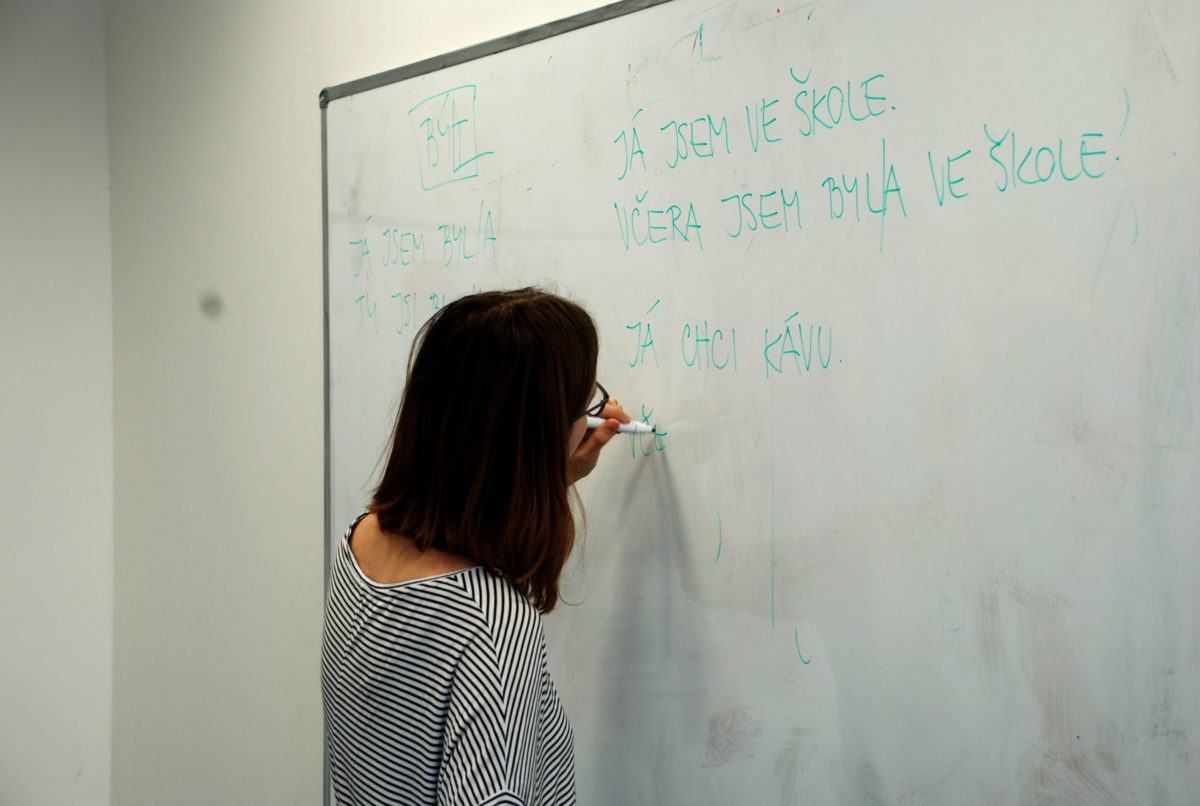 BÝT
JÁ JSEM BYL/A
TY JSI
JÁ JSEM VE ŠKOLE.
VČERA JSEM BYL/A VE ŠKOLE.
JÁ CHCI KÁVU.
VČE